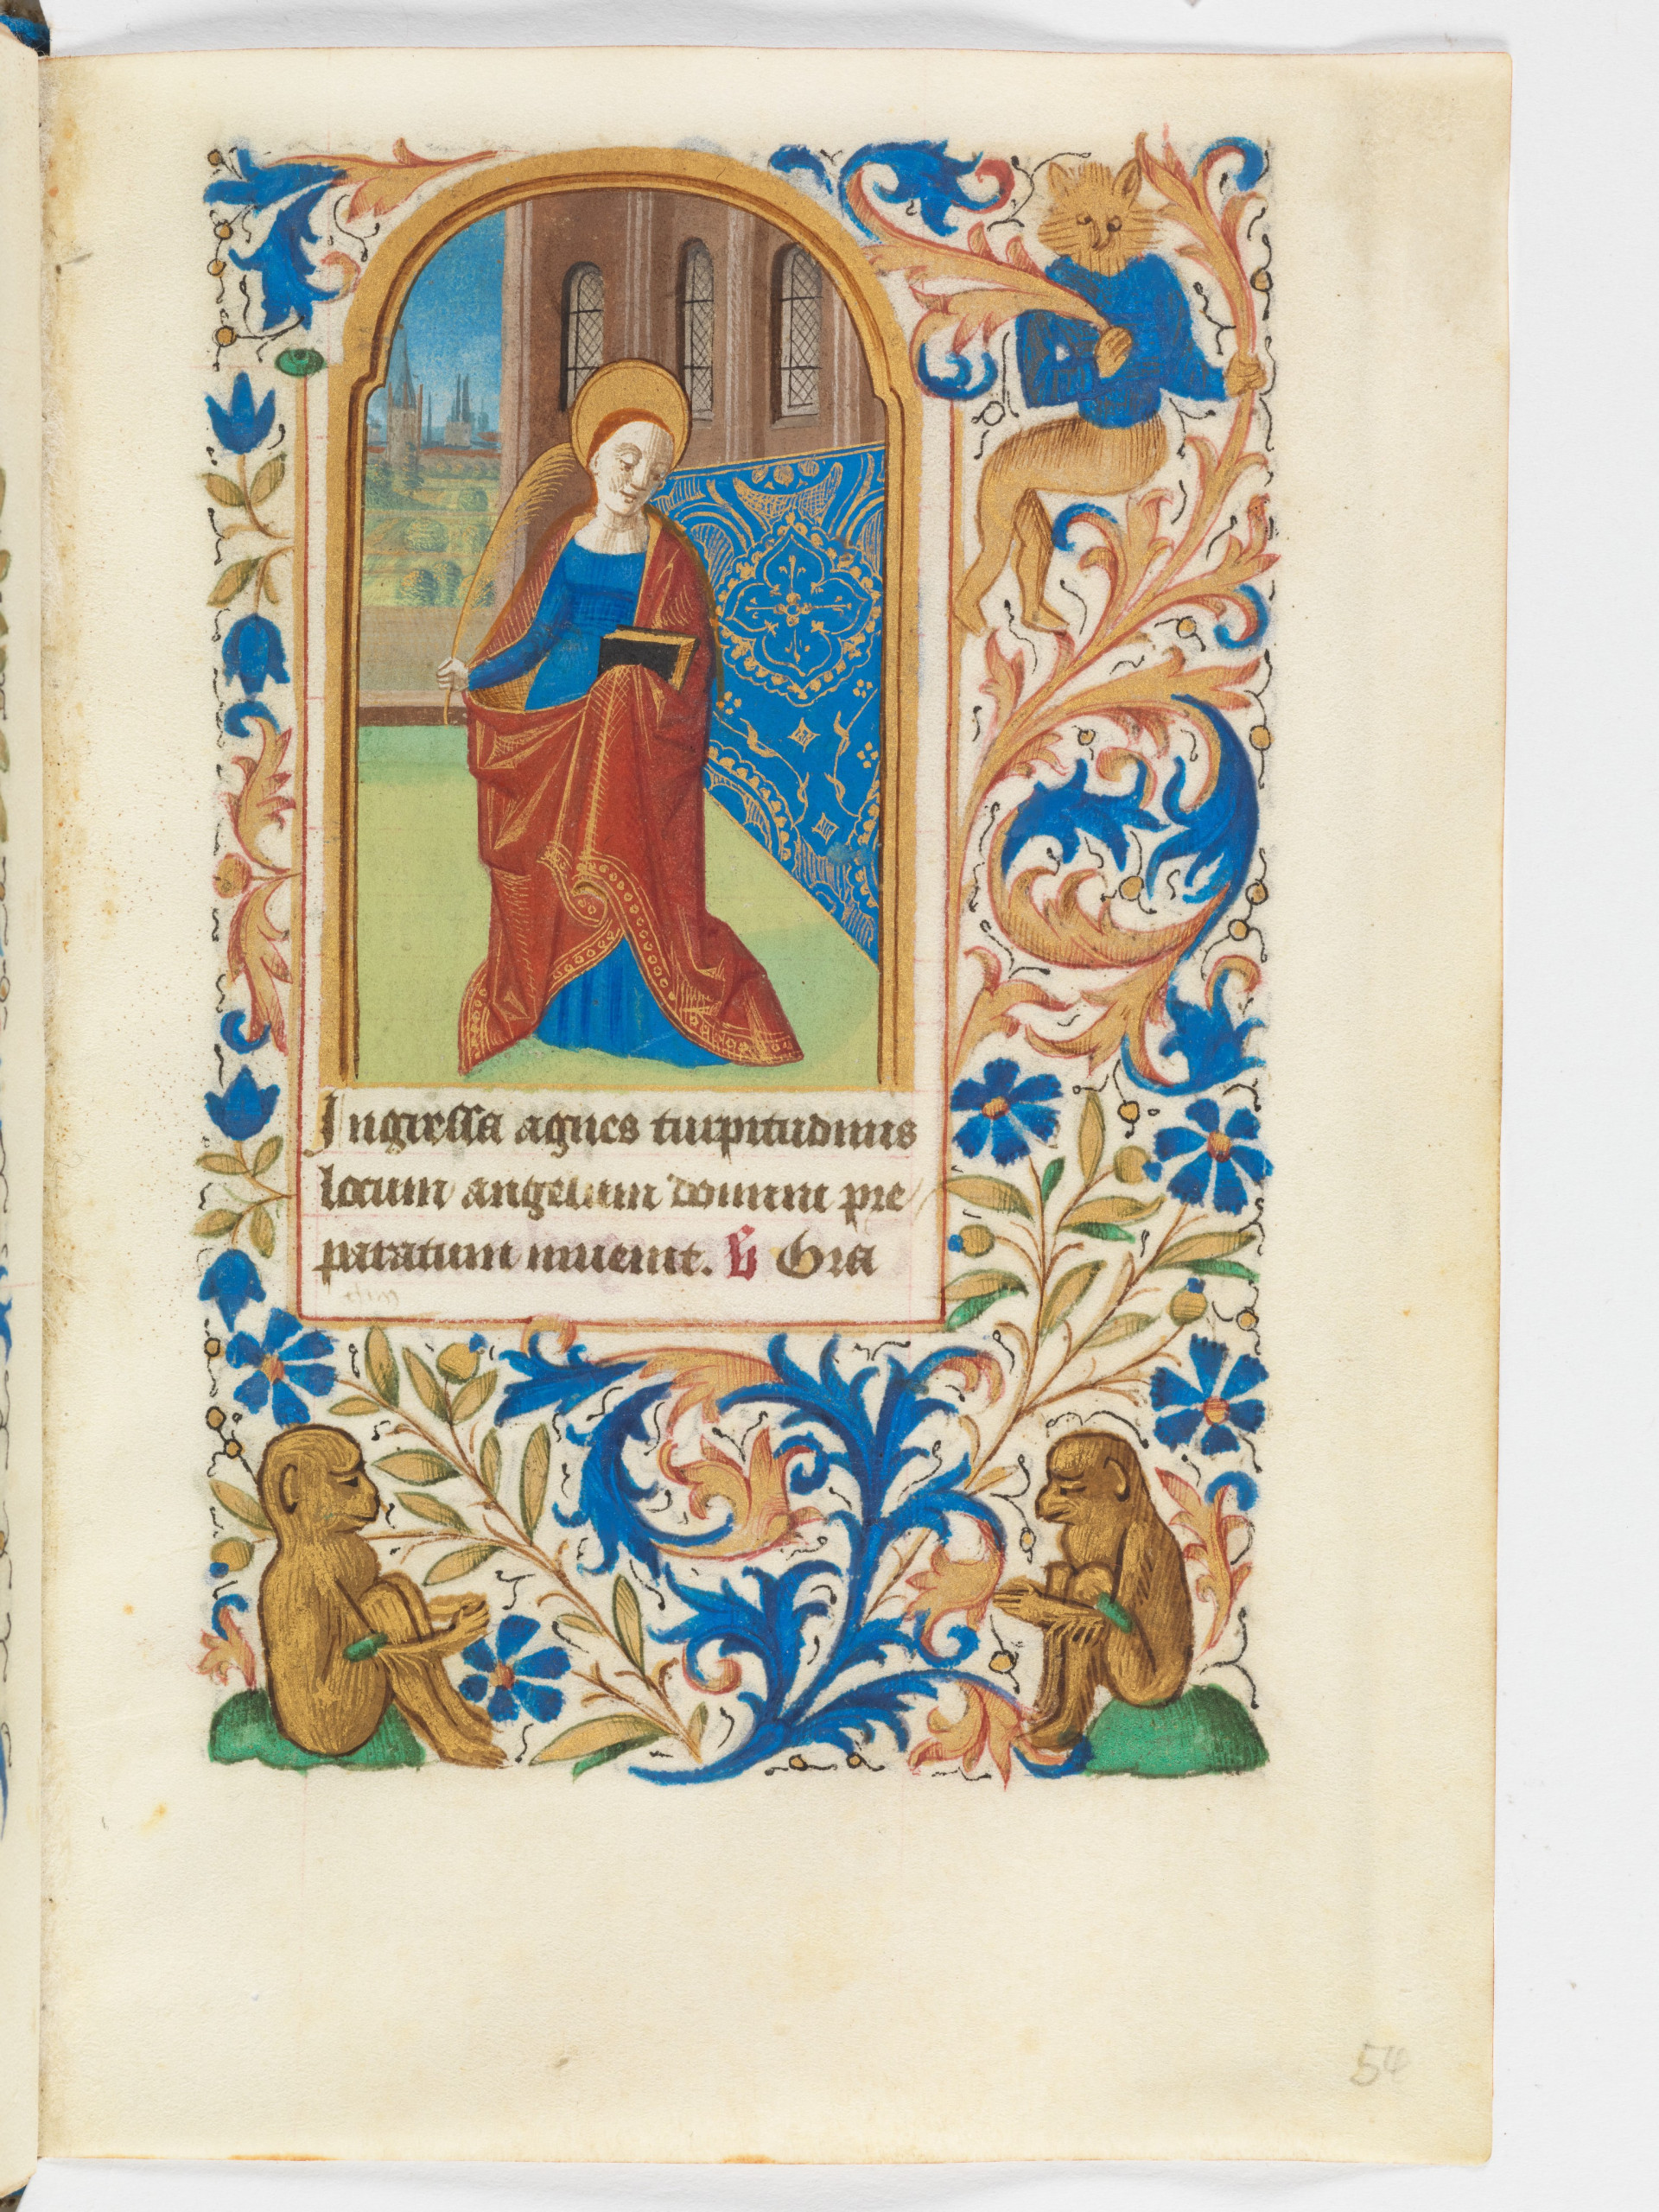 Ingressa agnes turpitudinis
locum angelum domini pre
paratum inuenit. V̷ Gra
54